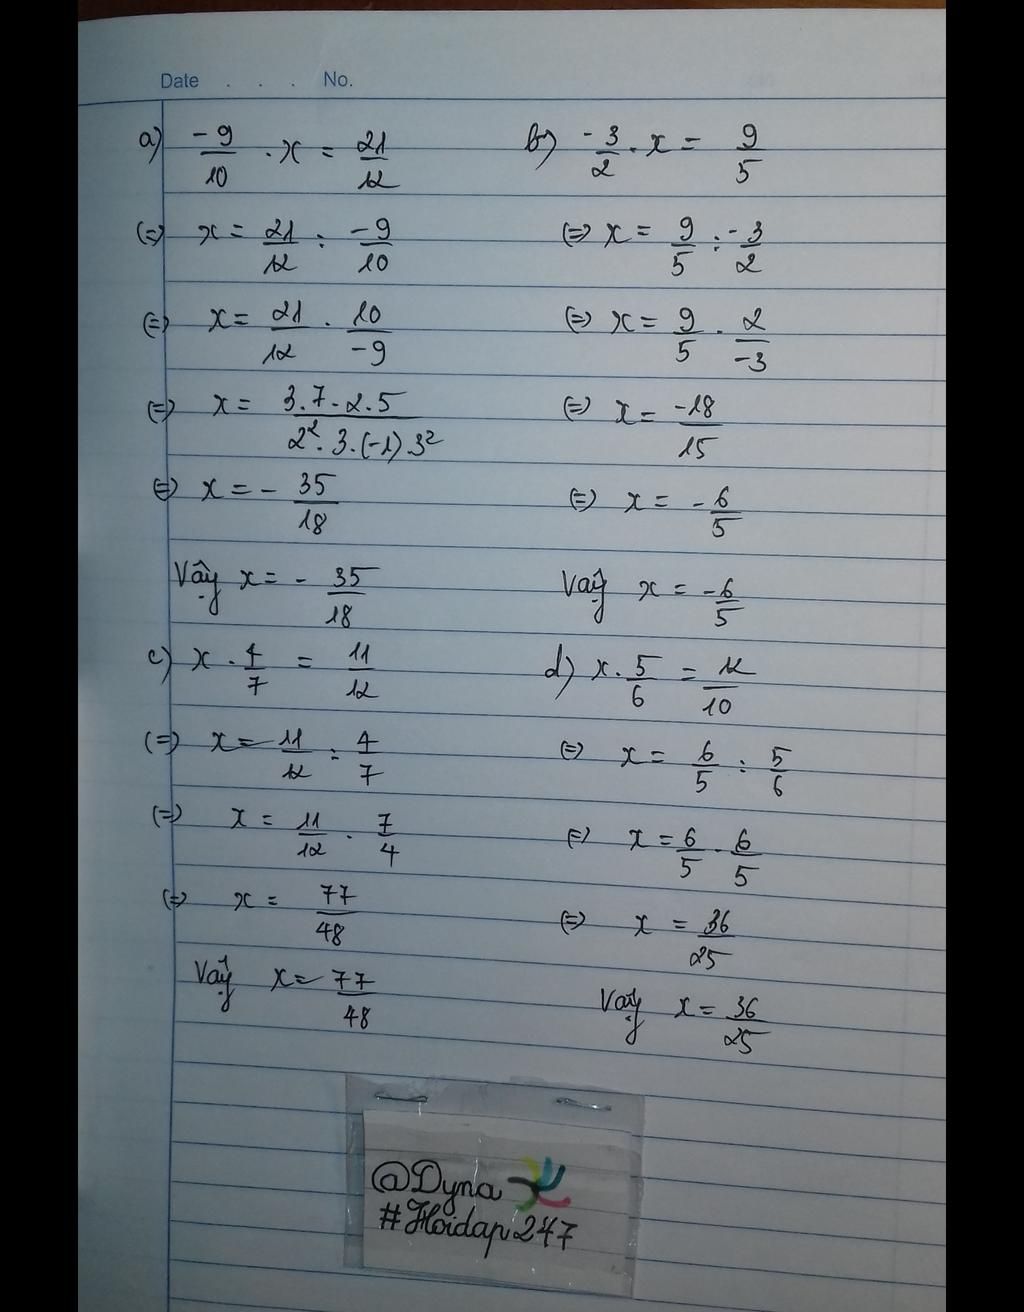 Date . . . No.
a) -9/10 . x = 21/12
(=) x = 21/12 : -9/10
(=) x = 21/12 . 10/-9
(=) x = 3.7.2.5/2². 3.(-1).3²
(=) x = - 35/18
Vậy x = - 35/18
b) -3/2 . x = 9/5
(=) x = 9/5 : -3/2
(=) x = 9/5 . 2/-3
(=) x = -18/15
(=) x = -6/5
Vậy x = -6/5
c) x . 4/7 = 11/12
(=) x = 11/12 : 4/7
(=) x = 11/12 . 7/4
(=) x = 77/48
Vậy x = 77/48
d) x . 5/6 = 12/10
(=) x = 6/5 : 5/6
(=) x = 6/5 . 6/5
(=) x = 36/25
Vậy x = 36/25
@Dyna
#Hoidap247